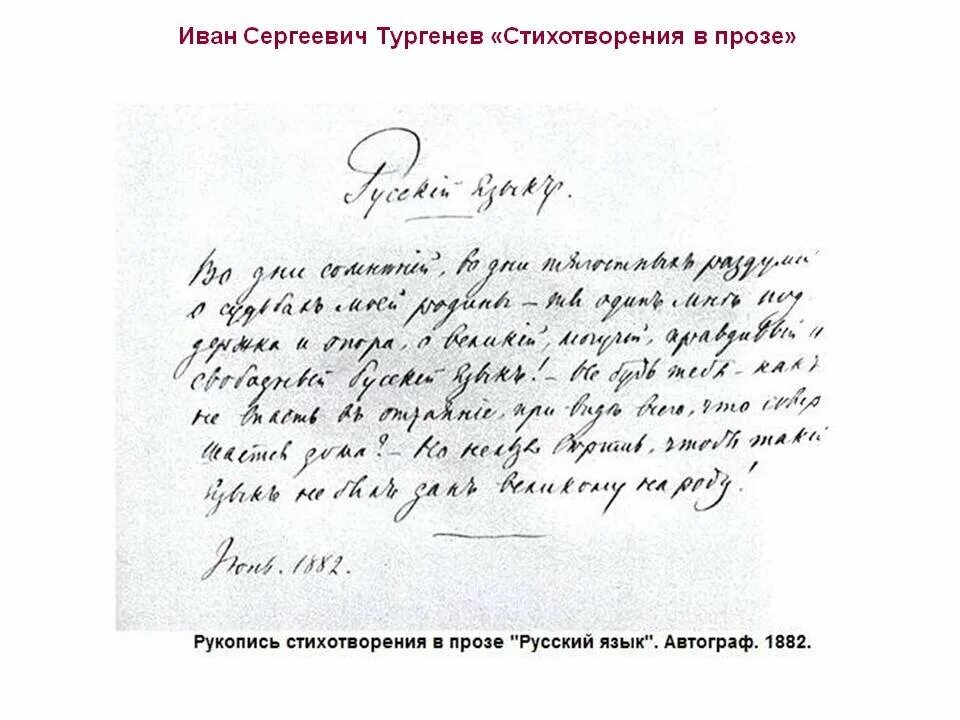 Иван Сергеевич Тургенев «Стихотворения в прозе»
Русскій Языкъ.
Во дни сомнѣній, во дни тягостныхъ раздумій
о судьбахъ моей родины – ты одинъ мнѣ под
держка и опора, о великій, могучій, правдивый и
свободный Русскій Языкъ! – Не будь тебя – какъ
не впасть въ отчаяніе, при видѣ всего, что совер
шается дома? – Но нельзя вѣрить, чтобы такой
языкъ не былъ данъ великому народу!
Июнь. 1882.
Рукопись стихотворения в прозе "Русский язык". Автограф. 1882.